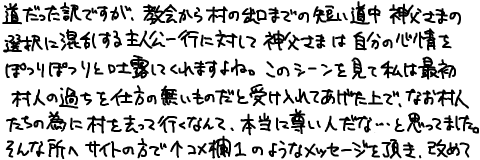 道だった訳ですが、教会から村の出口までの短い道中 神父さまの
選択に混乱する主人公一行に対して 神父さまは自分の心情を
ぽつりぽつりと吐露してくれますよね。このシーンを見て私は最初
村人の過ちを仕方の無いものだと受け入れてあげた上で、なお村人
たちの為に村を去って行くなんて、本当に尊い人だな…と思ってました。
そんな所へ サイトの方で个コメ欄1のようなメッセージを頂き、改めて